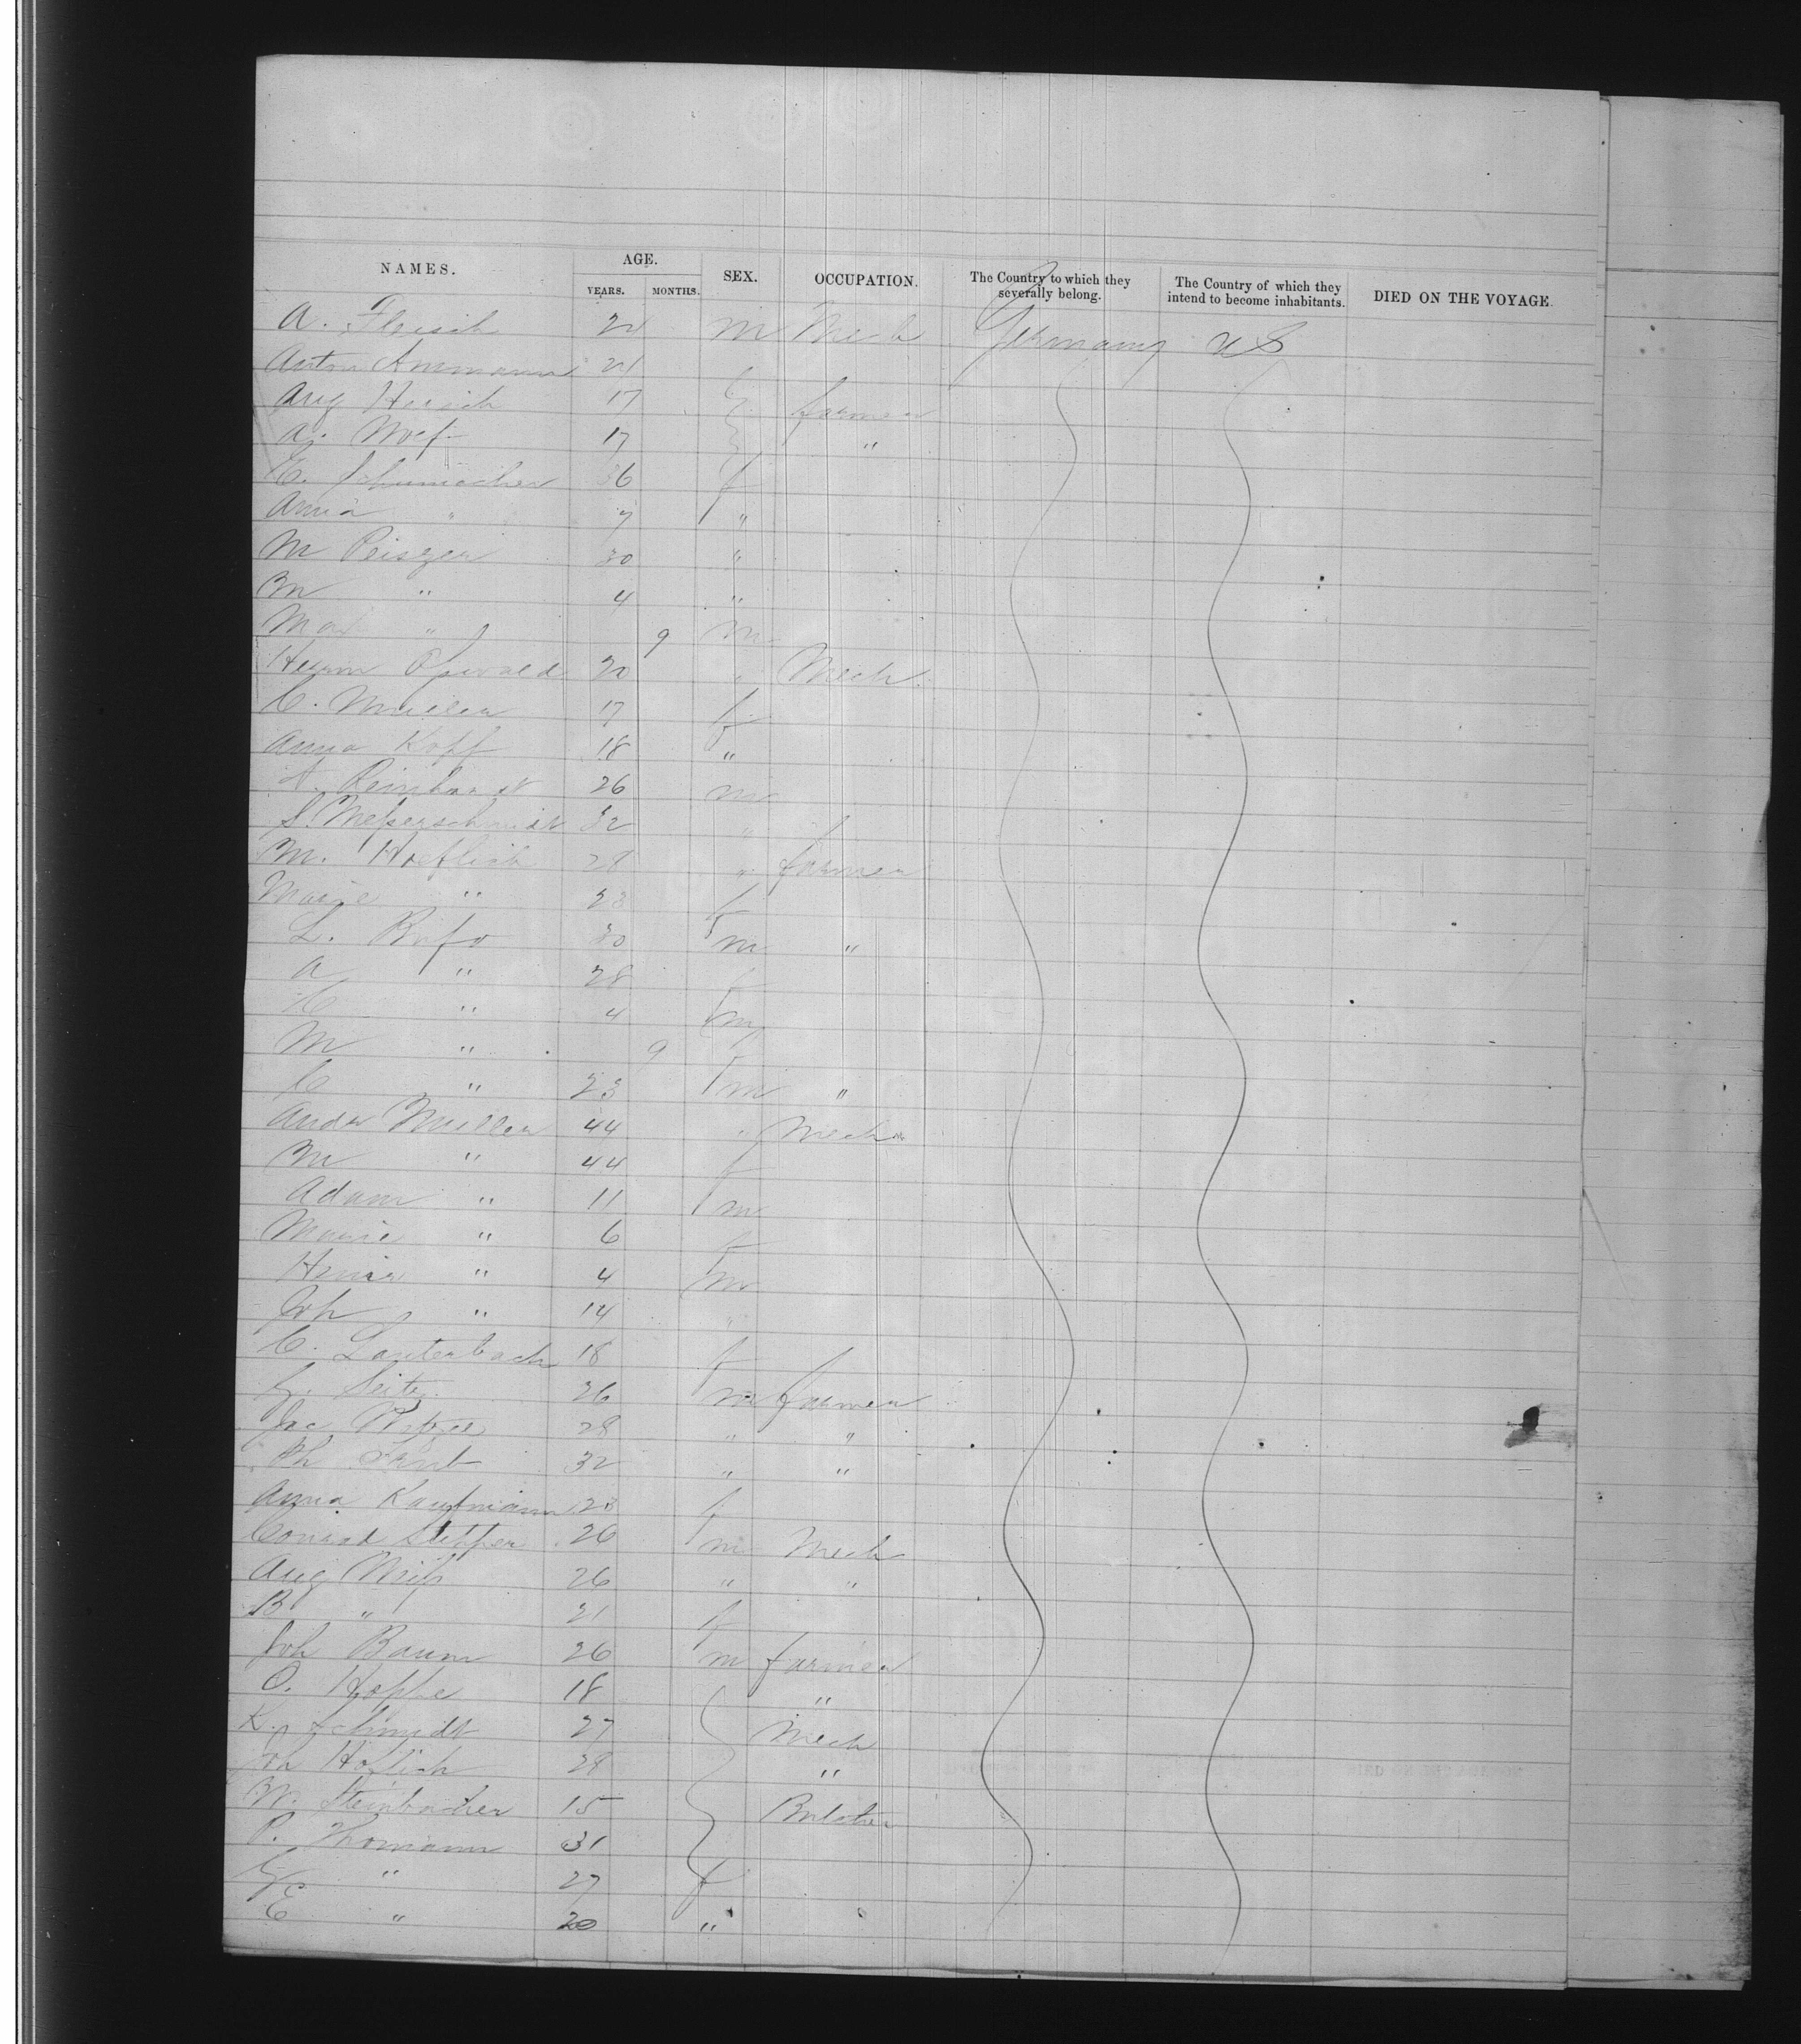 NAMES. AGE. SEX. OCCUPATION. The Country to which they severally belong. The Country of which they intend to become inhabitants. DIED ON THE VOYAGE.
YEARS. MONTHS.
A. Fleisch m Mech Germany US
Anton Ammann 21
Aug 17 farmer
A. 17 "
C. Schumacher 36 f
Anna " 7 "
M 30 "
M " 4 "
Max " 9 m
Herm Oswald 20 " Mech
C. Mueller 17 f
Anna Kopf 18 "
A. Reinhardt 26 m
S. Meßerschmidt 32 "
M. Hoeflich 28 " farmer
Marie " 23 f
L. 30 m "
A " 28 f
C " 4 m
M " 9 f
C " 23 m "
Andr Mueller 44 " Mech
M " 44 f
Adam " 11 m
Marie " 6 f
" 4 m
Joh " 14 "
C. Lauterbach 18 f
G. Seitz 26 m farmer
Jac 28 " "
Ph 32 " "
Anna Kaufmann 23 f
Conrad 26 m Mech
Aug 26 " "
B " 21 f
Joh Baum 26 m farmer
O. Hoppe 18 "
K. Schmidt 27 Mech
Joh 28 "
W. Steinbacher 15 Butcher
P. Thomann 31
G " 27 f
E " 20 "